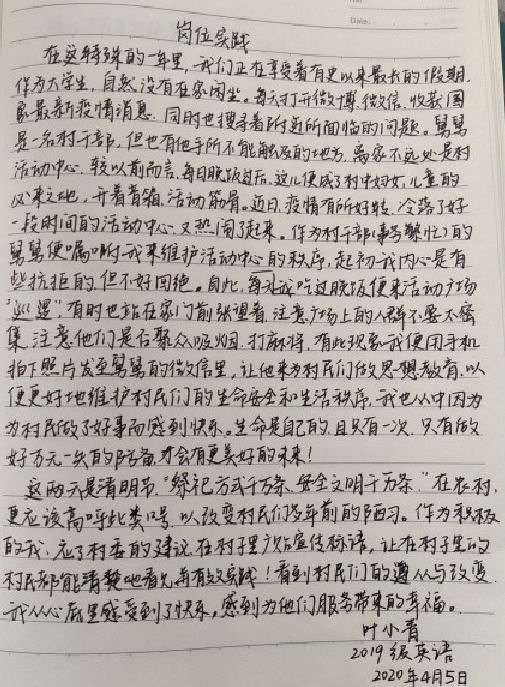 Date.
岗位实践
在这特殊的一年里,我们正在享受着有史以来最长的假期.
作为大学生,自然没有在家闲坐。每天打开微博,微信,收获国
家最新疫情消息,同时也搜寻着附近所面临的问题。舅舅
是一名村干部,但也有他手所不能触及的地方,离家不远处是村
活动中心,较以前而言,每日晚饭过后,这儿便成了村中妇女,儿童的
必来之地,开着音箱,活动筋骨。近日,疫情有所好转,冷落了好
一段时间的活动中心又热闹了起来。作为村干部(事务繁忙)的
舅舅便嘱咐我来维护活动中心的秩序,起初我内心是有
些抗拒的,但不好回绝。自此,每次我吃过晚饭便来活动广场
“巡逻”,有时也站在家门前张望着,注意广场上的人群不要太密
集,注意他们是否聚众吸烟,打麻将,有此现象我便用手机
拍下照片发至舅舅的微信里,让他来为村民们做思想教育,以
便更好地维护村民们的生命安全和生活秩序,我也从中因为
为村民做了好事而感到快乐。生命是自己的,且只有一次,只有做
好万无一失的防备,才会有更美好的未来!
这两天是清明节,“祭祀方式千万条,安全文明千万条.”在农村,
更应该高呼此类口号,以改变村民们多年前的陋习。作为积极
的我,应了村委的建议,在村子里广贴宣传标语,让在村子里的
村民都能清楚地看见并有效实践!看到村民们的遵从与改变,
我从心底里感受到了快乐,感到为他们服务带来的幸福。
叶小青
2019级英语
2020年4月5日